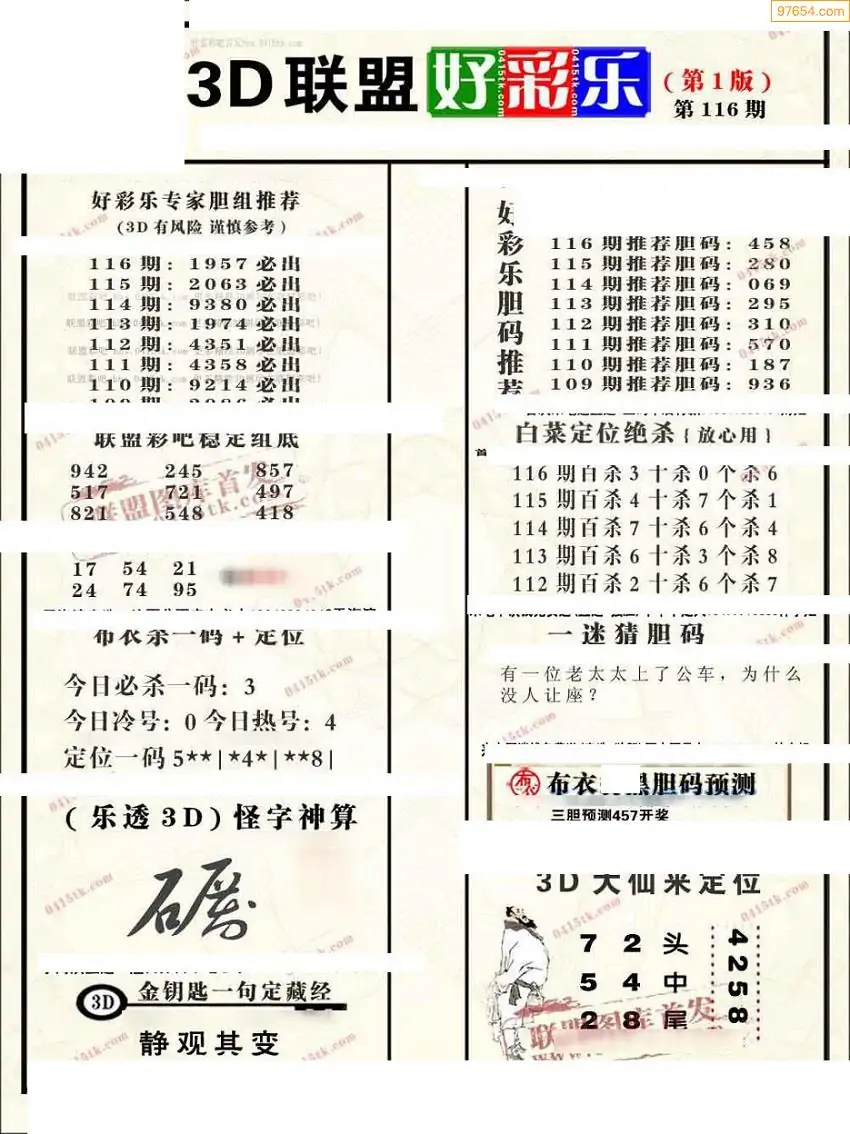 97654.com
3D联盟好彩乐(第1版)
第116期
好彩乐专家胆组推荐
(3D有风险 谨慎参考)
116期: 1957必出
115期: 2063必出
114期: 9380必出
113期: 1974必出
112期: 4351必出
111期: 4358必出
110期: 9214必出
联盟彩吧稳定组底
942 245 857
517 721 497
821 548 418
17 54 21
24 74 95
布衣杀一码+定位
今日必杀一码: 3
今日冷号: 0 今日热号: 4
定位一码5**|*4*|**8|
(乐透3D)怪字神算
3D 金钥匙一句定藏经
静观其变
好彩乐胆码推荐
116期推荐胆码: 458
115期推荐胆码: 280
114期推荐胆码: 069
113期推荐胆码: 295
112期推荐胆码: 310
111期推荐胆码: 570
110期推荐胆码: 187
109期推荐胆码: 936
白菜定位绝杀{放心用}
116期百杀3十杀0个杀6
115期百杀4十杀7个杀1
114期百杀7十杀6个杀4
113期百杀6十杀3个杀8
112期百杀2十杀6个杀7
一迷猜胆码
有一位老太太上了公车，为什么
没人让座？
布衣 胆码预测
三胆预测457开奖
3D大仙来定位
7 2 头
5 4 中
2 8 尾
4258